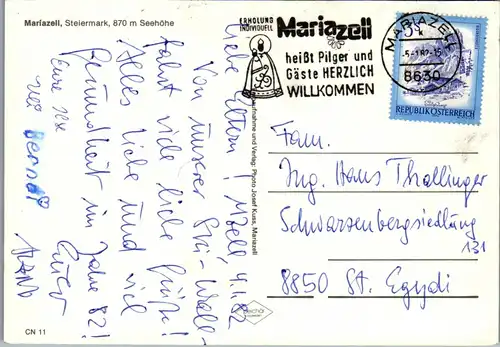 Mariazell, Steiermark, 870 m Seehöhe
ERHOLUNG
INDIVIDUELL
Mariazell
heißt Pilger und
Gäste HERZLICH
WILLKOMMEN
MARIAZELL
8630
REPUBLIK ÖSTERREICH
M'Zell 4.1.82
Liebe Eltern!
Von unserer Ski-Wall-
fahrt viele liebe Grüße!
Alles Liebe und viel
Gesundheit im Jahre 82!
Eure
Euer
Bernd
Aufnahme und Verlag: Photo Josef Kuss, Mariazell
Fam.
Ing. Hans Thallinger
Schwarzenbergsiedlung
131
8850 St. Egydi
CN 11